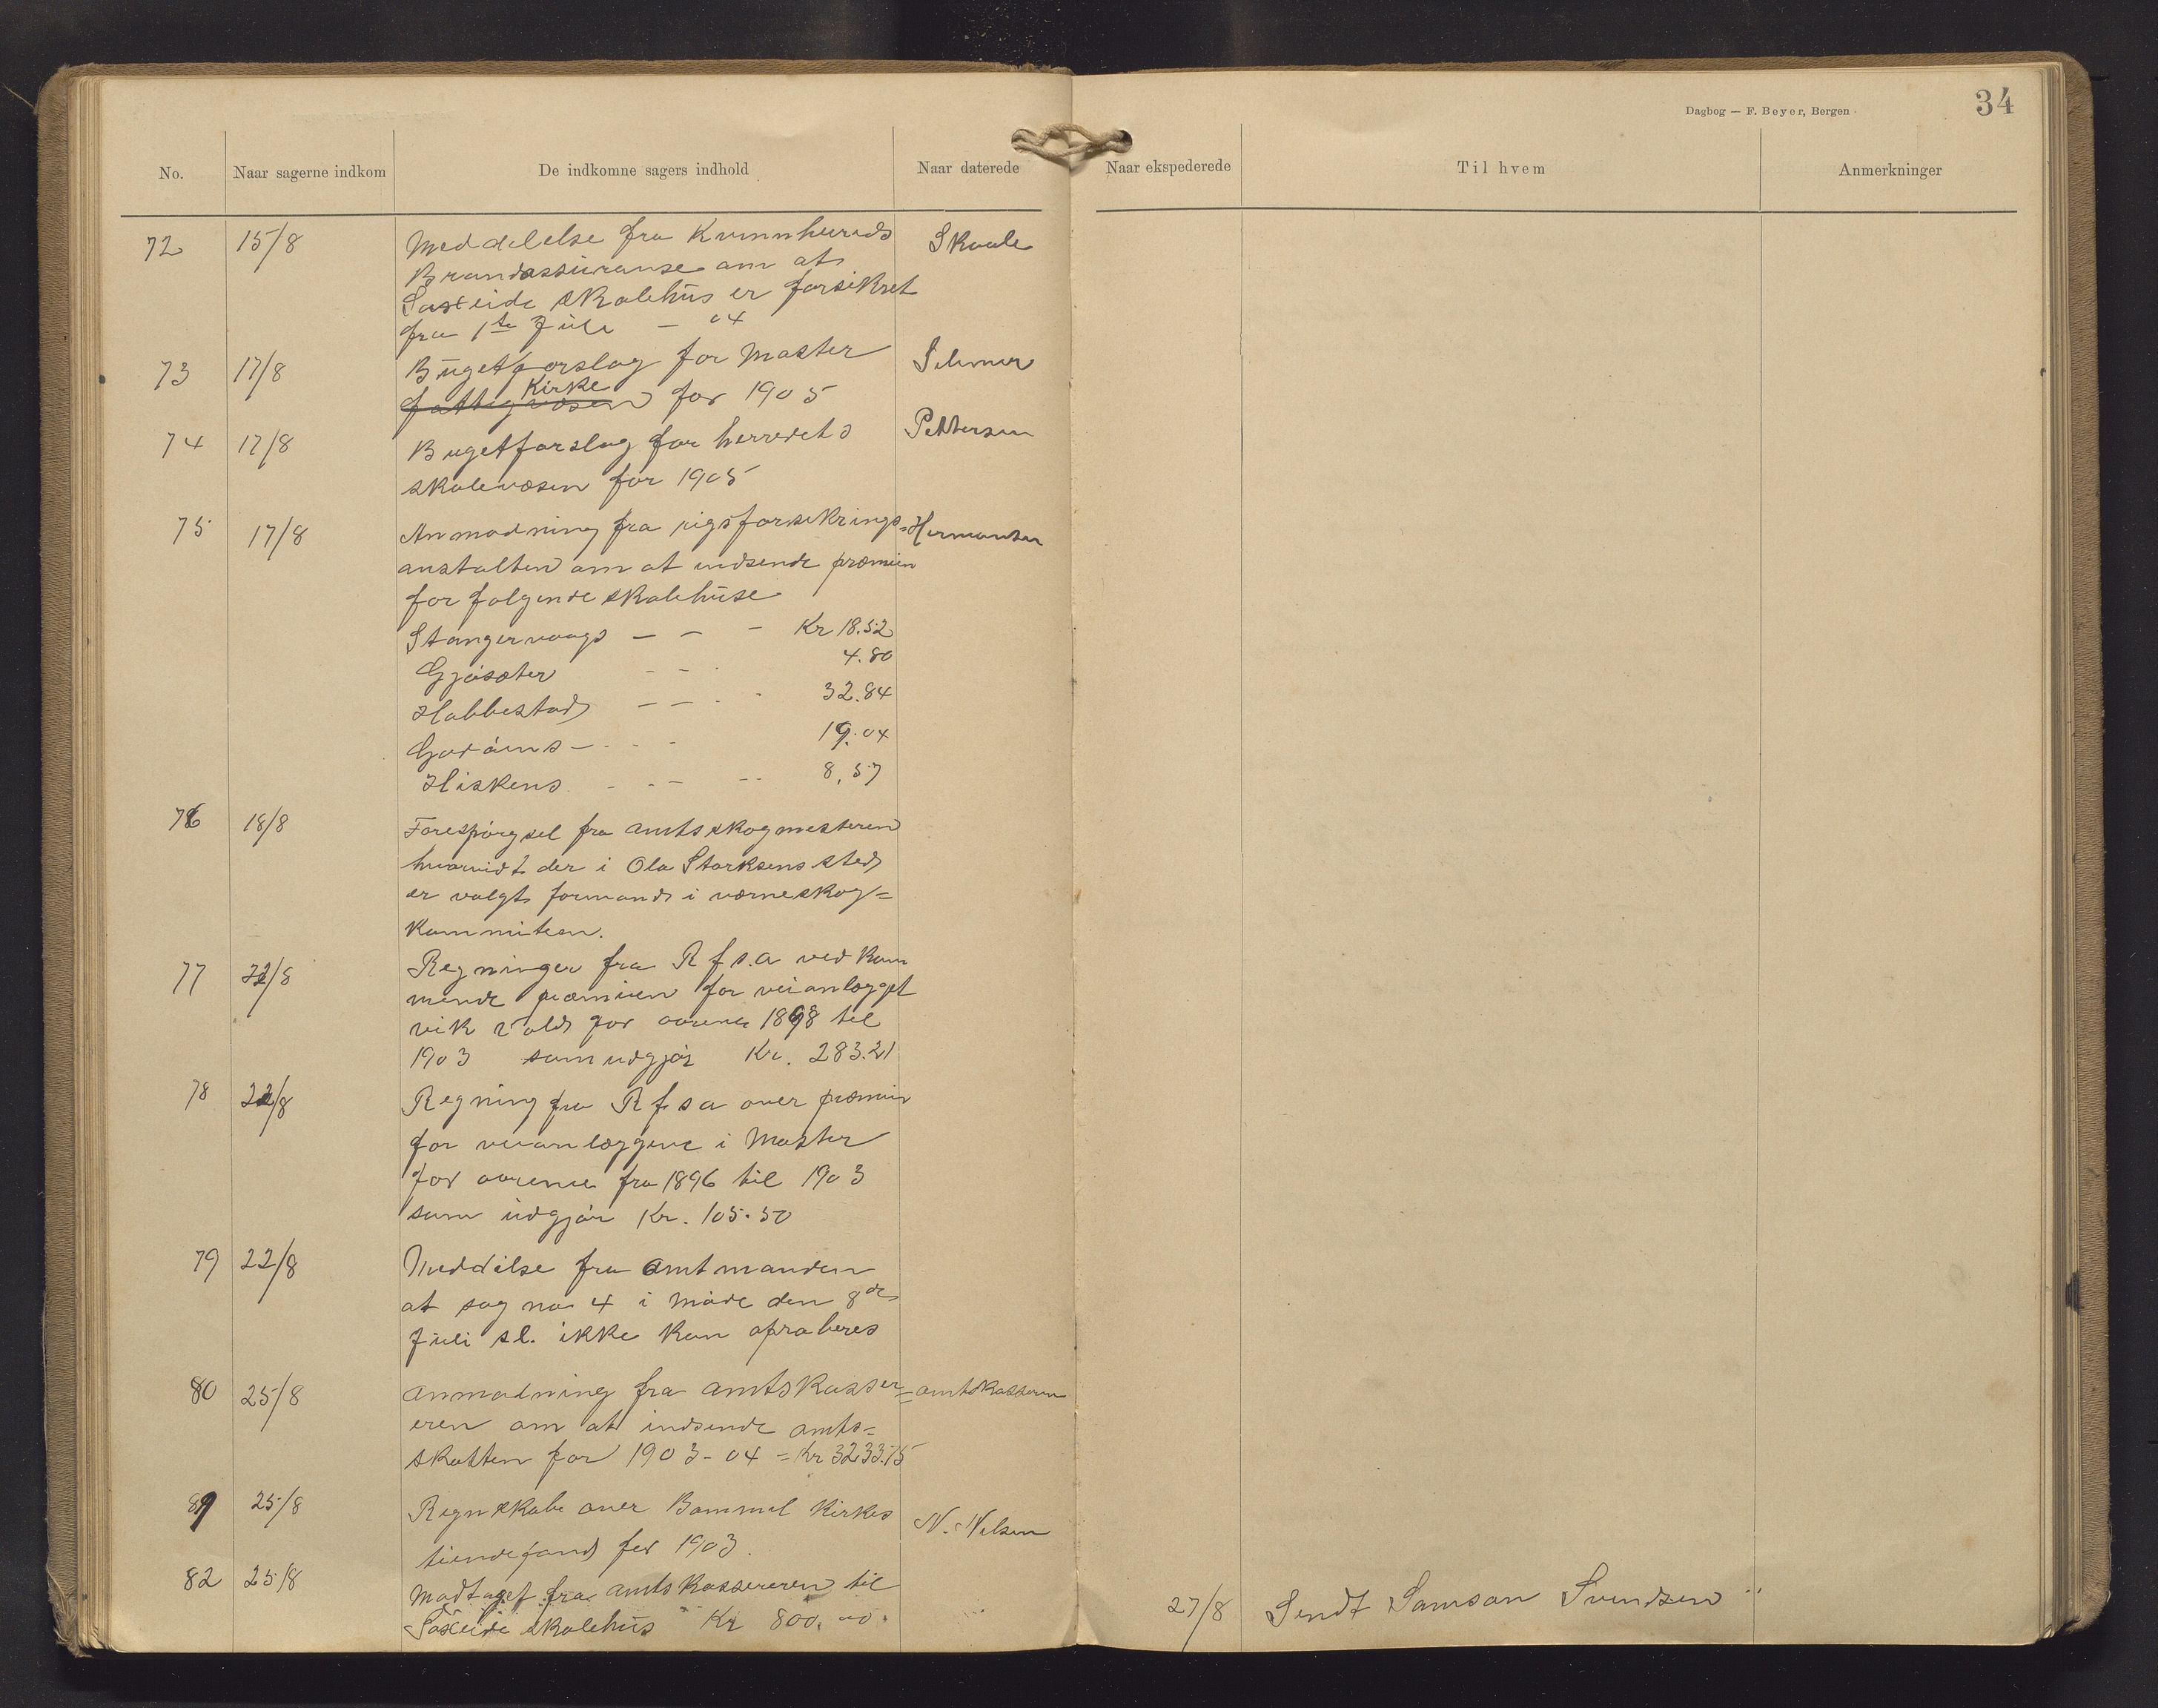 Dagbog — F. Beyer, Bergen
34
No. Naar sagerne indkom De indkomne sagers indhold Naar daterede Naar ekspederede Til hvem Anmerkninger
72 15/8 Meddelelse fra Kvinnherreds Skaale
Brandassüranse om at
Saxeide skolehüs er forsikret
fra 1te Jüli – 04
73 17/8 Bügetforslag for Moster
fattigvæsen Kirke for 1905
74 17/8 Bugetforslag for herredets Pettersen
skolevæsen for 1905
75 17/8 Anmodning fra rigsforsikrings= Hermansen
anstalten om at indsende præmien
for følgende skolehüse
Stangervaags – – – Kr 18.52
Gjøsæter – – 4.80
Habbestad – – - 32.84
Goddøns – 19.04
Hiskens – 8,57
76 18/8 Forespørgsel fra amtsskogmesteren
hvorvidt der i Ola Storksens sted
er valgt formand i værneskog=
kommiteen.
77 22/8 Regninger fra R f s.a vedkom
mende præmien for veianlægget
vik Vold for aarene 1898 til
1903 som udgjør Kr. 283.21
78 22/8 Regning fra R f s a over præmie
for veianlæggene i Moster
for aarene fra 1896 til 1903
som üdgjør Kr. 105.50
79 22/8 Meddelse fra amtmanden
at sag no 4 i møde den 8de
Jüli sl. ikke kan aproberes
80 25/8 anmodning fra amtskasser= amtskasseren
eren om at indsende amts=
skatten for 1903-04 = Kr 3233.75
81 25/8 Regnskabe over Bømmel Kirkes N. Nilsen
tiendefond for 1903.
82 25/8 Modtaget fra amtskassereren til
Saxeide skolehüs Kr 800.00. 27/8 Sendt Samson Svendsen